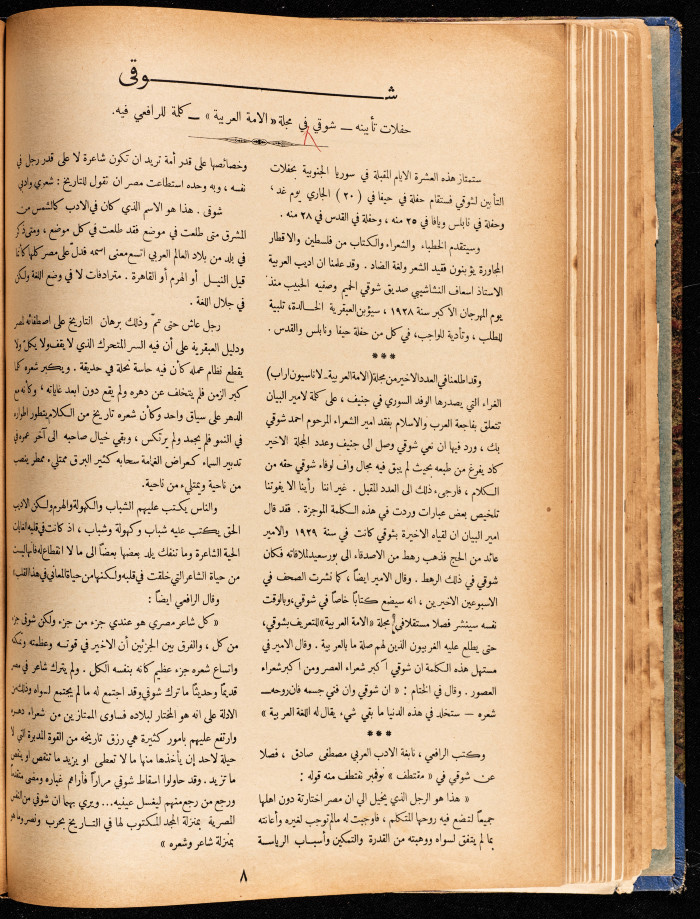 شوقي
حفلات تأبينه — شوقي في مجلة «الامة العربية» — كلمة للرافعي فيه.
ستمتاز هذه العشرة الايام المقبلة في سوريا الجنوبية بحفلات
التأبين لشوقي فستقام حفلة في حيفا في (٢٠) الجاري يوم غد،
وحفلة في نابلس ويافا في ٢٥ منه، وحفلة في القدس في ٢٨ منه.
وسيتقدم الخطباء والشعراء والكتاب من فلسطين والاقطار
المجاورة يؤبنون فقيد الشعر ولغة الضاد. وقد علمنا ان اديب العربية
الاستاذ اسعاف النشاشيبي صديق شوقي الحميم وصفيه الحبيب منذ
يوم المهرجان الأكبر سنة ١٩٢٨، سيؤبن العبقرية الخالدة، تلبية
للطلب، وتأدية للواجب، في كل من حفلة حيفا ونابلس والقدس.
***
وقد اطلعنا في العدد الاخير من مجلة (الامة العربية ـ لاناسيون اراب)
الغراء التي يصدرها الوفد السوري في جنيف، على كلمة لامير البيان
تتعلق بفاجعة العرب والاسلام بفقد امير الشعراء المرحوم احمد شوقي
بك، ورد فيها ان نعي شوقي وصل الى جنيف وعدد المجلة الاخير
كاد يفرغ من طبعه بحيث لم يبق فيه مجال واف لوفاء شوقي حقه من
الكلام، فارجىء ذلك الى العدد المقبل. غير اننا رأينا الا يفوتنا
تلخيص بعض عبارات وردت في هذه الكلمة الموجزة. فقد قال
امير البيان ان لقياه الاخيرة بشوقي كانت في سنة ١٩٢٩ والامير
عائد من الحج فذهب رهط من الاصدقاء الى بورسعيد لملاقاته فكان
شوقي في ذلك الرهط. وقال الامير ايضاً، كما نشرت الصحف في
الاسبوعين الاخيرين، انه سيضع كتاباً خاصاً في شوقي، وبالوقت
نفسه سينشر فصلا مستقلا في مجلة «الامة العربية» للتعريف بشوقي،
حتى يطلع عليه الغربيون الذين لهم صلة ما بالعربية. وقال الامير في
مستهل هذه الكلمة ان شوقي اكبر شعراء العصر ومن اكبر شعراء
العصور. وقال في الختام: «ان شوقي وان فني جسمه فان روحه ـ
شعره ـ ستخلد في هذه الدنيا ما بقي شيء يقال له اللغة العربية»
***
وكتب الرافعي، نابغة الادب العربي مصطفى صادق، فصلا
عن شوقي في «مقتطف» نوفمبر نقتطف منه قوله:
«هذا هو الرجل الذي يخيل الي ان مصر اختارتة دون اهلها
جميعاً لتضع فيه روحها المتكلم، فاوجبت له مالم توجب لغيره وأعانته
بما لم يتفق لسواه ووهبته من القدرة والتمكين وأسباب الرياسة
وخصائصها على قدر أمة تريد ان تكون شاعرة لا على قدر رجل في
نفسه، وبه وحده استطاعت مصر ان تقول للتاريخ: شعري وادبي
شوقي. هذا هو الاسم الذي كان في الادب كالشمس من
المشرق متى طلعت في موضع فقد طلعت في كل موضع، ومتى ذكر
في بلد من بلاد العالم العربي اتسع معنى اسمه فدلّ على مصر كلها كأنما
قيل النيل او الهرم أو القاهرة. مترادفات لا في وضع اللغة ولكن
في جلال اللغة.
رجل عاش حتى تمّ وذلك برهان التاريخ على اصطفائه لمصر
ودليل العبقرية على أن فيه السر المتحرك الذي لا يقف ولا يكلّ ولا
يقطع نظام عمله كأن فيه حاسة نحلة في حديقة. ويكبر شعره كلما
كبر الزمن فلم يتخلف عن دهره ولم يقع دون ابعد غاياته، وكأنه مع
الدهر على سياق واحد وكأن شعره تاريخ من الكلام يتطور اطواره
في النمو فلم يجمد ولم يرتكس، وبقي خيال صاحبه الى آخر عمره في
تدبير السماء كعراض الغمامة سحابه كثير البرق ممتلىء ممطر ينصب
من ناحية ويمتلىء من ناحية.
والناس يكتب عليهم الشباب والكهولة والهرم ولكن الاديب
الحق يكتب عليه شباب وكهولة وشباب، اذ كانت في قلبه الغايات
الحية الشاعرة وما تنفك يلد بعضها بعضاً الى ما لا انقطاع له فانها ليست
من حياة الشاعر التي خلقت في قلبه ولكنها من حياة المعاني في هذا القلب»
وقال الرافعي ايضاً:
«كل شاعر مصري هو عندي جزء من جزء ولكن شوقي جزء
من كل، والفرق بين الجزئين أن الاخير في قوته وعظمته وتمكنه
واتساع شعره جزء عظيم كانه بنفسه الكل. ولم يترك شاعر في مصر
قديماً وحديثاً ما ترك شوقي وقد اجتمع له ما لم يجتمع لسواه وذلك من
الادلة على انه هو المختار لبلاده فساوى الممتازين من شعراء دهره
وارتفع عليهم بامور كثيرة هي رزق تاريخه من القوة المدبرة التي لا
حيلة لاحد إن يأخذها منها ما لا تعطى او يزيد ما تنقص او ينقص
ما تزيد. وقد حاولوا اسقاط شوقي مراراً فأراهم غباره ومضى متقدما
ورجع من رجع منهم ليغسل عينيه... ويرى بهما ان شوقي من النفس
المصرية بمنزلة المجد المكتوب لها في التاريخ بحرب ونصر وما هو
بمنزلة شاعر وشعره»
٨